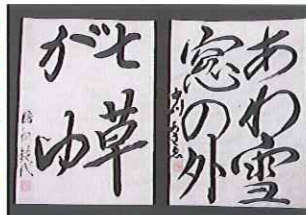 あわ雪
窓の外
七草
がゆ